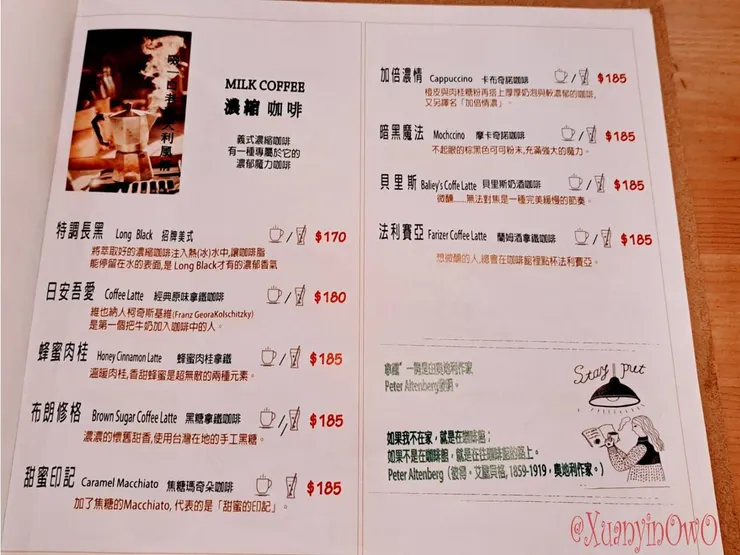 MILK COFFEE
濃縮 咖啡
義式濃縮咖啡
有一種專屬於它的
濃郁魔力咖啡
特調長黑 Long Black 招牌美式 $170
將萃取好的濃縮咖啡注入熱(冰)水中,讓咖啡脂
能停留在水的表面,是 Long Black才有的濃郁香氣
日安吾愛 Coffee Latte 經典原味拿鐵咖啡 $180
維也納人柯奇斯基維(Franz GeoraKolschitzky)
是第一個把牛奶加入咖啡中的人。
蜂蜜肉桂 Honey Cinnamon Latte 蜂蜜肉桂拿鐵 $185
溫暖肉桂,香甜蜂蜜是超無敵的兩種元素。
布朗修格 Brown Sugar Coffee Latte 黑糖拿鐵咖啡 $185
濃濃的懷舊甜香,使用台灣在地的手工黑糖。
甜蜜印記 Caramel Macchiato 焦糖瑪奇朵咖啡 $185
加了焦糖的Macchiato, 代表的是「甜蜜的印記」。
加倍濃情 Cappuccino 卡布奇諾咖啡 $185
橙皮與肉桂糖粉再搭上厚厚奶泡與較濃郁的咖啡,
又另譯名「加倍情濃」。
暗黑魔法 Mochccino 摩卡奇諾咖啡 $185
不起眼的棕黑色可可粉末,充滿強大的魔力。
貝里斯 Baliey's Coffe Latte 貝里斯奶酒咖啡 $185
微醺......無法對焦是一種完美緩慢的節奏。
法利賽亞 Farizer Coffee Latte 蘭姆酒拿鐵咖啡 $185
想微醺的人,總會在咖啡館裡點杯法利賽亞。
Peter Altenberg發明。
Stay put
如果我不在家，就是在咖啡館；
如果不是在咖啡館，就是在往咖啡館的路上。
Peter Altenberg（彼得・艾騰貝格, 1859-1919，奧地利作家。）
@XuanyinOwO